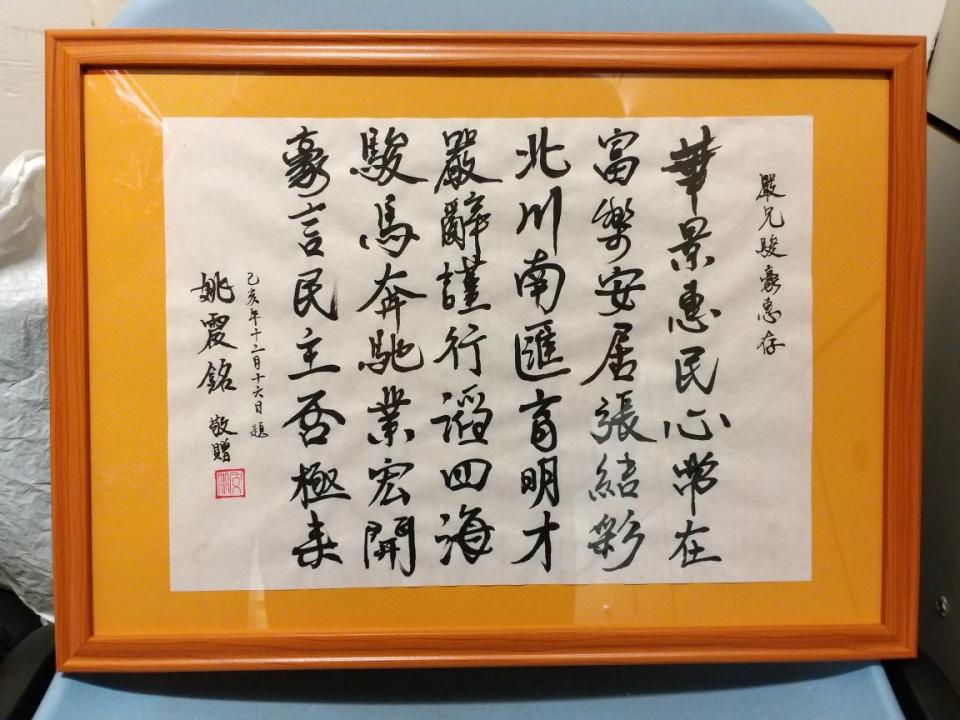 嚴兄駿豪惠存
華景惠民心常在
富樂安居張結彩
北川南匯育明才
嚴辭謹行滔四海
駿馬奔馳業宏開
豪言民主否極來
乙亥年十二月十六日題
姚震銘
敬贈